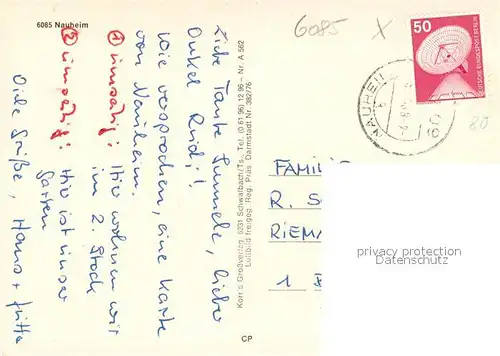 6085 Nauheim
6085
x
50
DEUTSCHE BUNDESPOST BERLIN
NAUHEIM
80
Liebe Tante Simmele, lieber
Onkel Rudi!
Wie versprochen, eine Karte
von Nauheim.
① umseitig: Hier wohnen wir
im 2. Stock
② umseitig: Hier ist unser
Garten
Viele Grüße, Hans + Jutta
Korr's Großverlag, 6231 Schwalbach/Ts., Tel. (0 61 96) 12 96 – Nr. A 562
Luftbild freigeg. Reg. Präs. Darmstadt Nr. 382/76
CP
FAMILI
R. S
RIEMA
1
privacy protection
Datenschutz